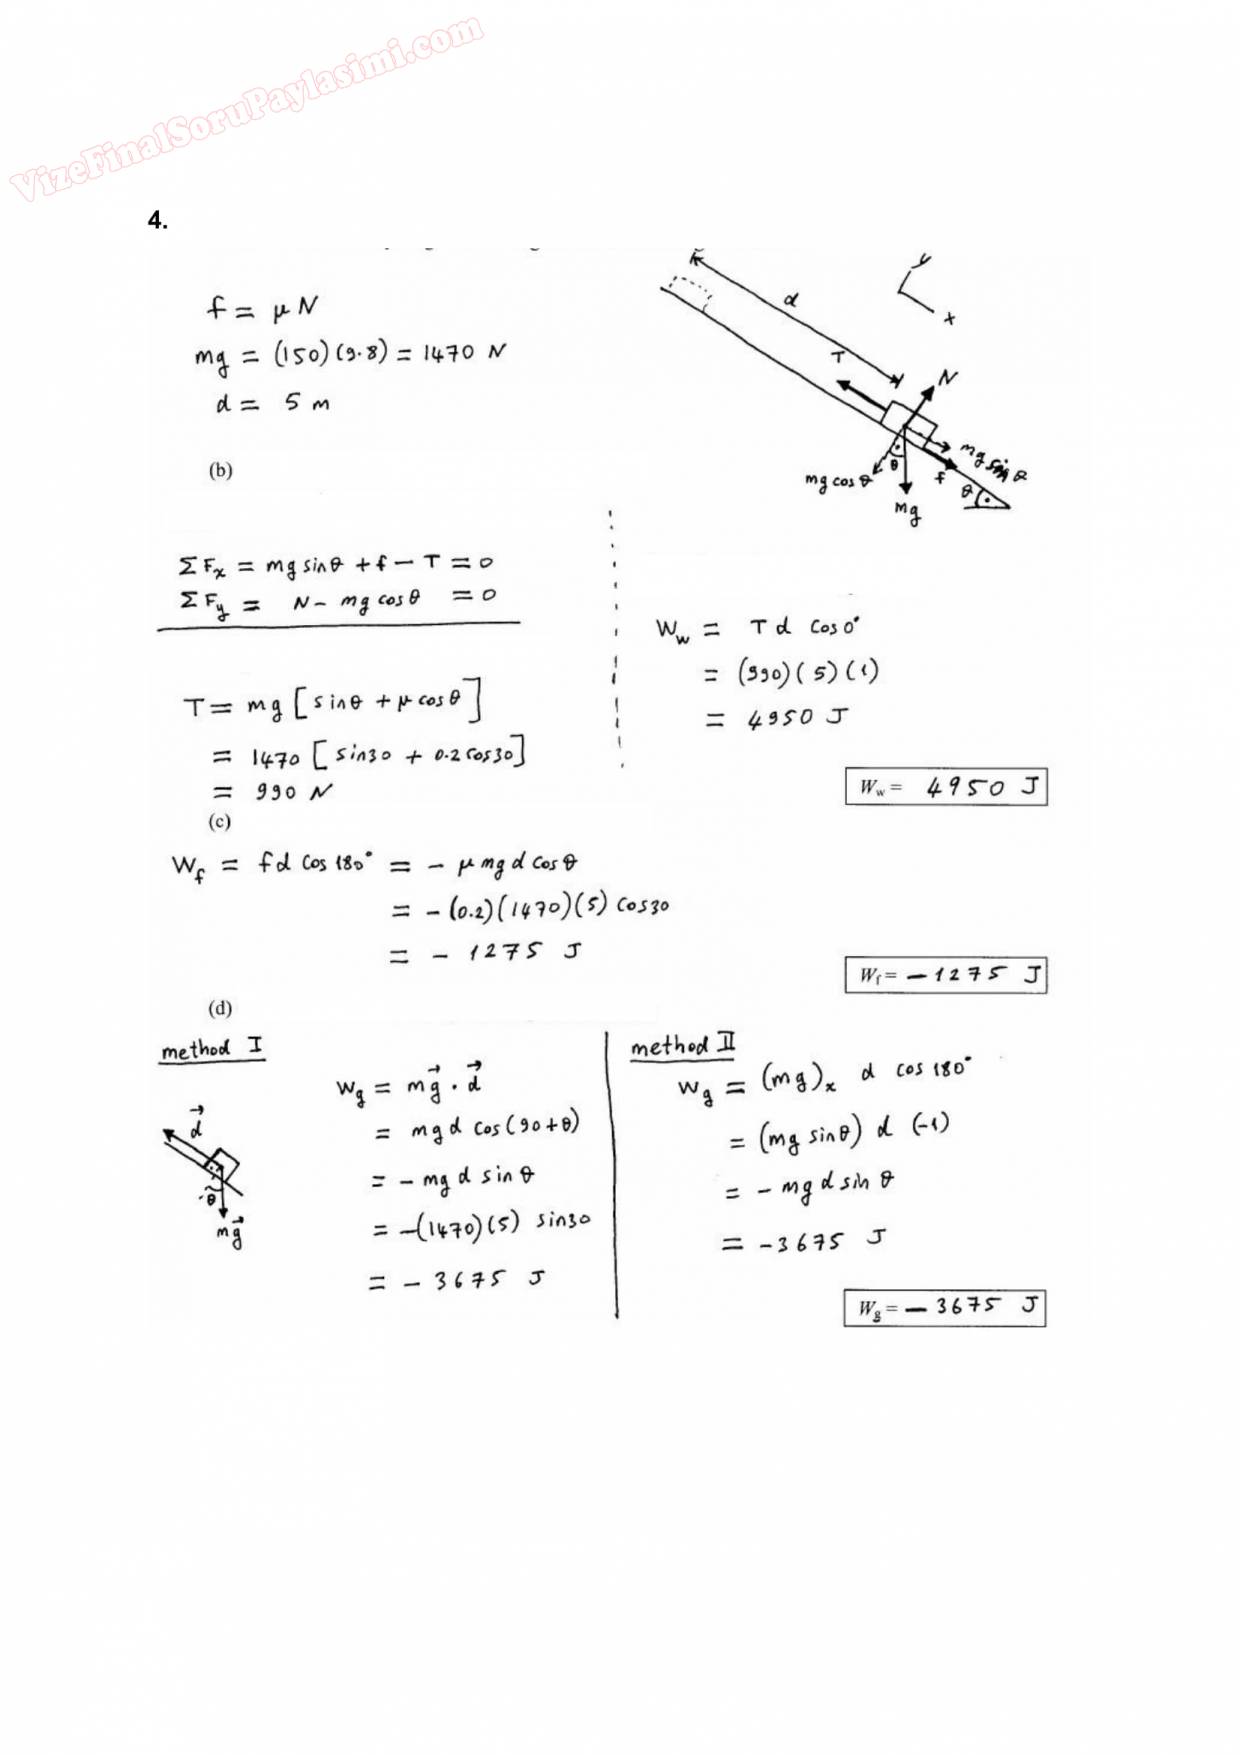 VizeFinalSoruPaylasimi.com
4.
f = μN
mg = (150)(9.8) = 1470 N
d = 5 m
(b)
y
x
d
T
N
mg sinθ
f
mg cosθ
θ
mg
θ
ΣFx = mg sinθ + f - T = 0
ΣFy = N - mg cosθ = 0
T = mg [sinθ + μ cosθ]
= 1470 [sin30 + 0.2 cos30]
= 990 N
Ww = T d cos0°
= (990)(5)(1)
= 4950 J
Ww = 4950 J
(c)
Wf = fd cos 180° = - μ mg d cosθ
= - (0.2)(1470)(5) cos30
= - 1275 J
Wf = - 1275 J
(d)
method I
d
θ
mg
Wg = mg . d
= mgd cos(90+θ)
= - mg d sinθ
= -(1470)(5) sin30
= - 3675 J
method II
Wg = (mg)x d cos 180°
= (mg sinθ) d (-1)
= - mg d sin θ
= - 3675 J
Wg = - 3675 J